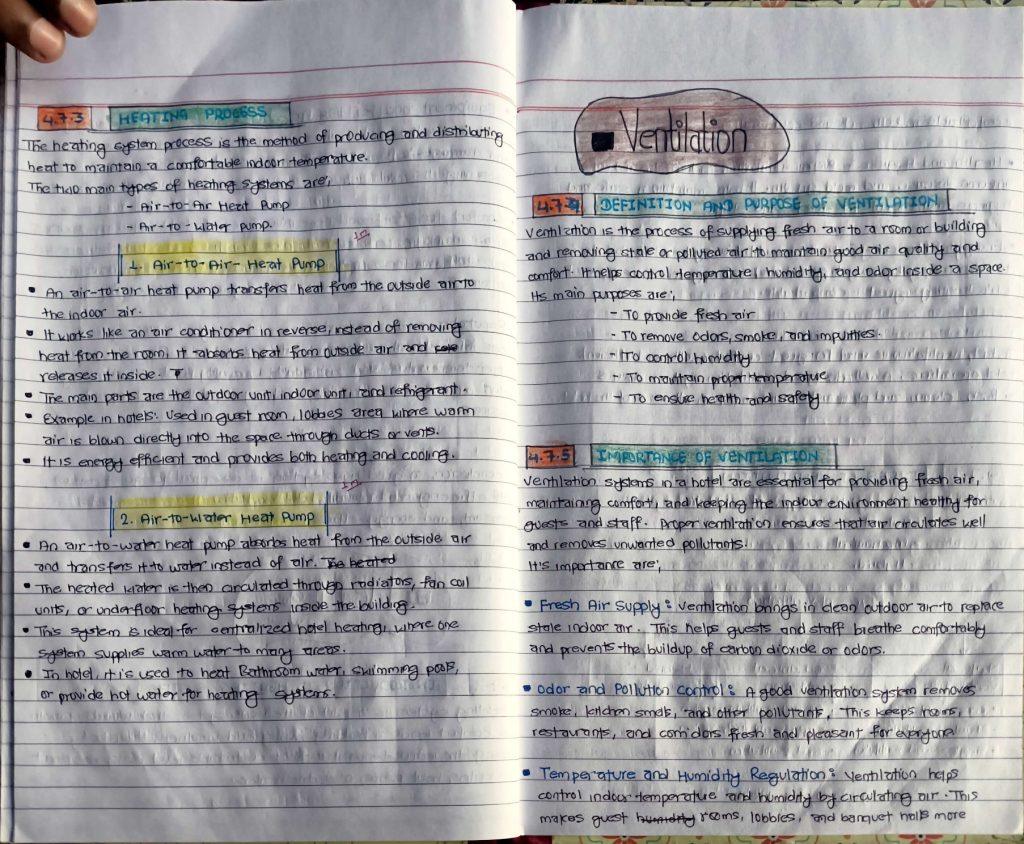 4.7.3 HEATING PROCESS
The heating system process is the method of producing and distributing
heat to maintain a comfortable indoor temperature.
The two main types of heating systems are,
- Air-to-Air Heat Pump
- Air-to-Water pump.
1. Air-to-Air- Heat Pump
• An air-to-air heat pump transfers heat from the outside air to
the indoor air.
• It works like an air conditioner in reverse, instead of removing
heat from the room, it absorbs heat from outside air and
releases it inside.
• The main parts are the outdoor unit, indoor unit, and refrigerant.
• Example in hotels: Used in guest room, lobbies area where warm
air is blown directly into the space through ducts or vents.
• It is energy efficient and provides both heating and cooling.
2. Air-to-Water Heat Pump
• An air-to-water heat pump absorbs heat from the outside air
and transfers it to water instead of air. The heated
• The heated water is then circulated through radiators, fan coil
units, or underfloor heating systems inside the building.
• This system is ideal for centralized hotel heating, where one
system supplies warm water to many areas.
• In hotel, it is used to heat Bathroom water, swimming pools,
or provide hot water for heating systems.
Ventilation
4.7.4 DEFINITION AND PURPOSE OF VENTILATION
Ventilation is the process of supplying fresh air to a room or building
and removing stale or polluted air to maintain good air quality and
comfort. It helps control temperature, humidity, and odor inside a space.
Its main purposes are,
- To provide fresh air
- To remove odors, smoke, and impurities.
- To control humidity
- To maintain proper temperature
- To ensure health and safety
4.7.5 IMPORTANCE OF VENTILATION
Ventilation systems in a hotel are essential for providing fresh air,
maintaining comfort, and keeping the indoor environment healthy for
guests and staff. Proper ventilation ensures that air circulates well
and removes unwanted pollutants.
It's importance are,
• Fresh Air Supply: Ventilation brings in clean outdoor air to replace
stale indoor air. This helps guests and staff breathe comfortably
and prevents the buildup of carbon dioxide or odors.
• Odor and Pollution Control: A good ventilation system removes
smoke, kitchen smells, and other pollutants. This keeps rooms,
restaurants, and corridors fresh and pleasant for everyone
• Temperature and Humidity Regulation: Ventilation helps
control indoor temperature and humidity by circulating air. This
makes guest humidity rooms, lobbies, and banquet halls more